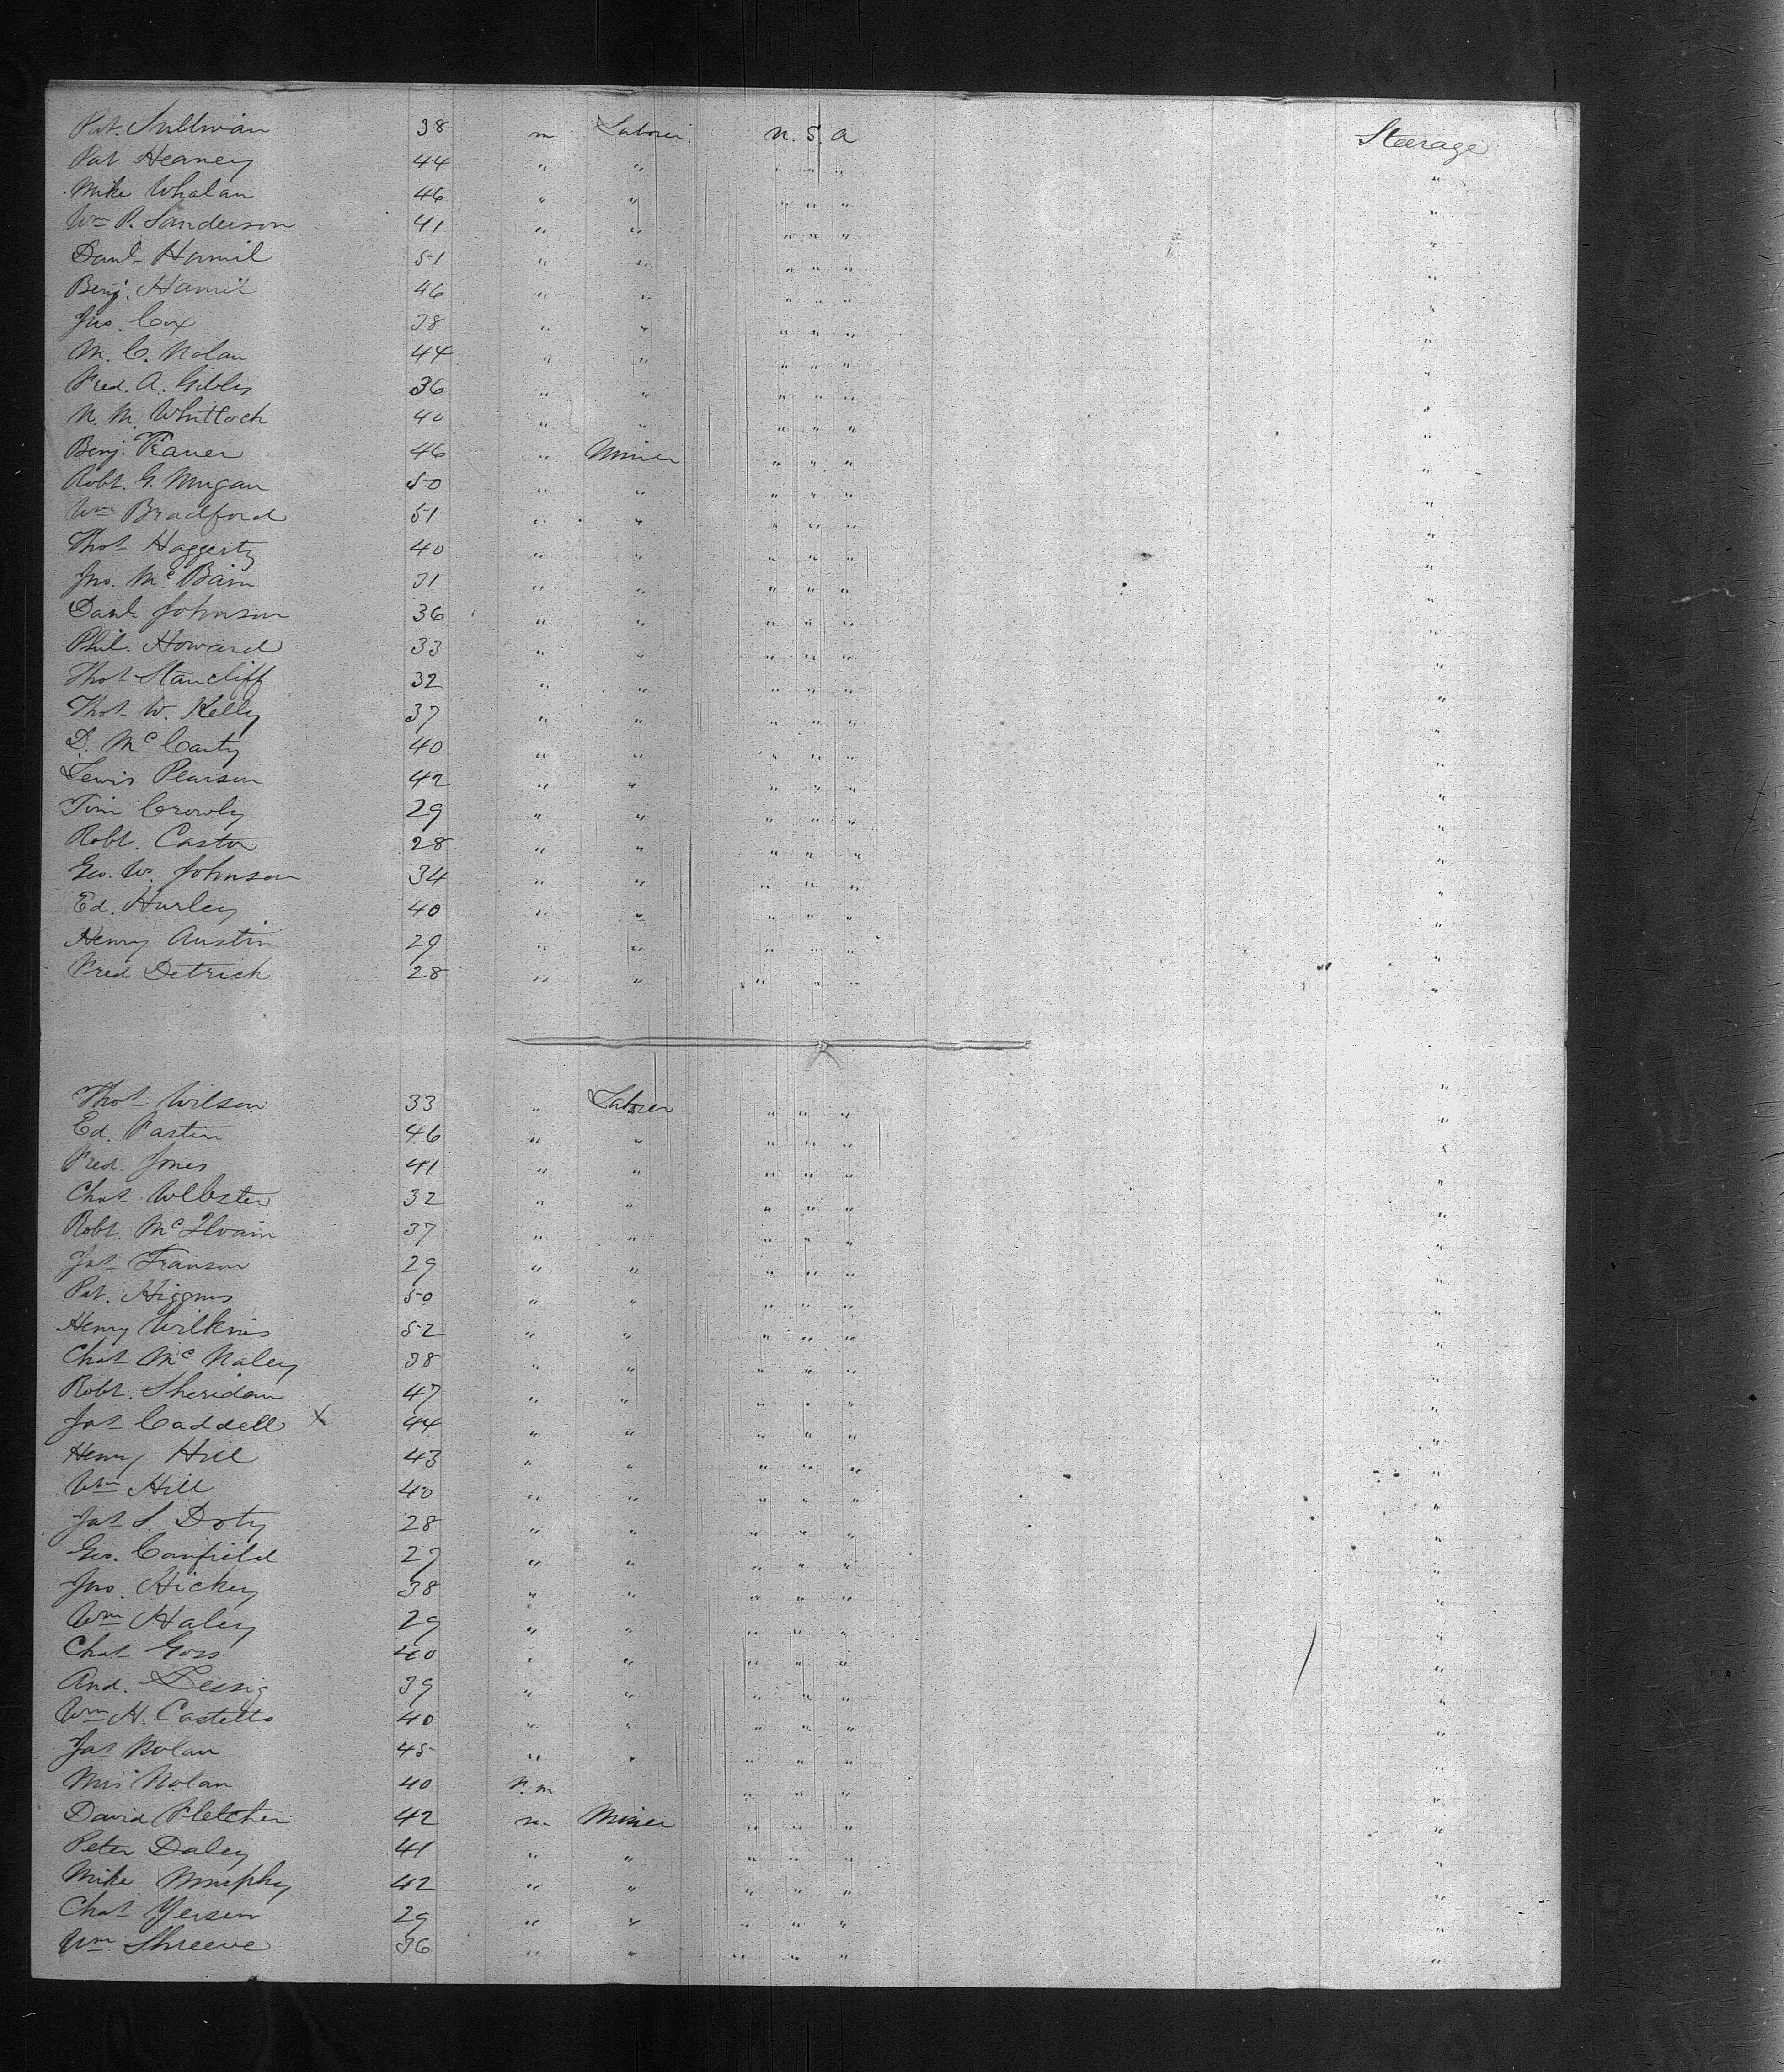 Pat. Sullivan 38 m Laborer U. S. A Steerage
Pat Heaney 44 " " " " " "
Mike Whalan 46 " " " " " "
Wm P. Sanderson 41 " " " " " "
Danl Hamil 51 " " " " " "
Benj. Hamil 46 " " " " " "
Jno. Cox 38 " " " " " "
M. C. Nolan 44 " " " " " "
Fred. A. Gibbs 36 " " " " " "
N. M. Whitlock 40 " " " " " "
Benj. 46 " Miner " " " "
Robt. G. 50 " " " " " "
Wm Bradford 51 " " " " " "
Thos Haggerty 40 " " " " " "
Jno. McBain 31 " " " " " "
Danl Johnson 36 " " " " " "
Phil. Howard 33 " " " " " "
Thos Stancliff 32 " " " " " "
Thos W. Kelly 37 " " " " " "
D. McCarty 40 " " " " " "
Lewis Pearson 42 " " " " " "
Tim Crowly 29 " " " " " "
Robt. Castor 28 " " " " " "
Geo. W. Johnson 34 " " " " " "
Ed. Hurley 40 " " " " " "
Henry Austin 29 " " " " " "
Fred Detrick 28 " " " " " "
Thos Wilson 33 " Laborer " " " "
Ed. 46 " " " " " "
Fred. Jones 41 " " " " " "
Chas Webster 32 " " " " " "
Robt. McIlvain 37 " " " " " "
Jas Franson 29 " " " " " "
Pat. Higgins 50 " " " " " "
Henry Wilkins 52 " " " " " "
Chas McNaley 38 " " " " " "
Robt. Sheridan 47 " " " " " "
Jas Caddell X 44 " " " " " "
Henry Hill 43 " " " " " "
Wm Hill 40 " " " " " "
Jas S. Doty 28 " " " " " "
Geo. Canfield 27 " " " " " "
Jno. Hickey 38 " " " " " "
Wm Haley 29 " " " " " "
Chas Goss 40 " " " " " "
And. Lessig 39 " " " " " "
Wm H. Castetto 40 " " " " " "
Jas Nolan 45 " " " " " "
Mrs Nolan 40 F. m " " " "
David Fletcher 42 m Miner " " " "
Peter Daley 41 " " " " " "
Mike Murphy 42 " " " " " "
Chas Yersen 29 " " " " " "
Wm Shreeve 36 " " " " " "